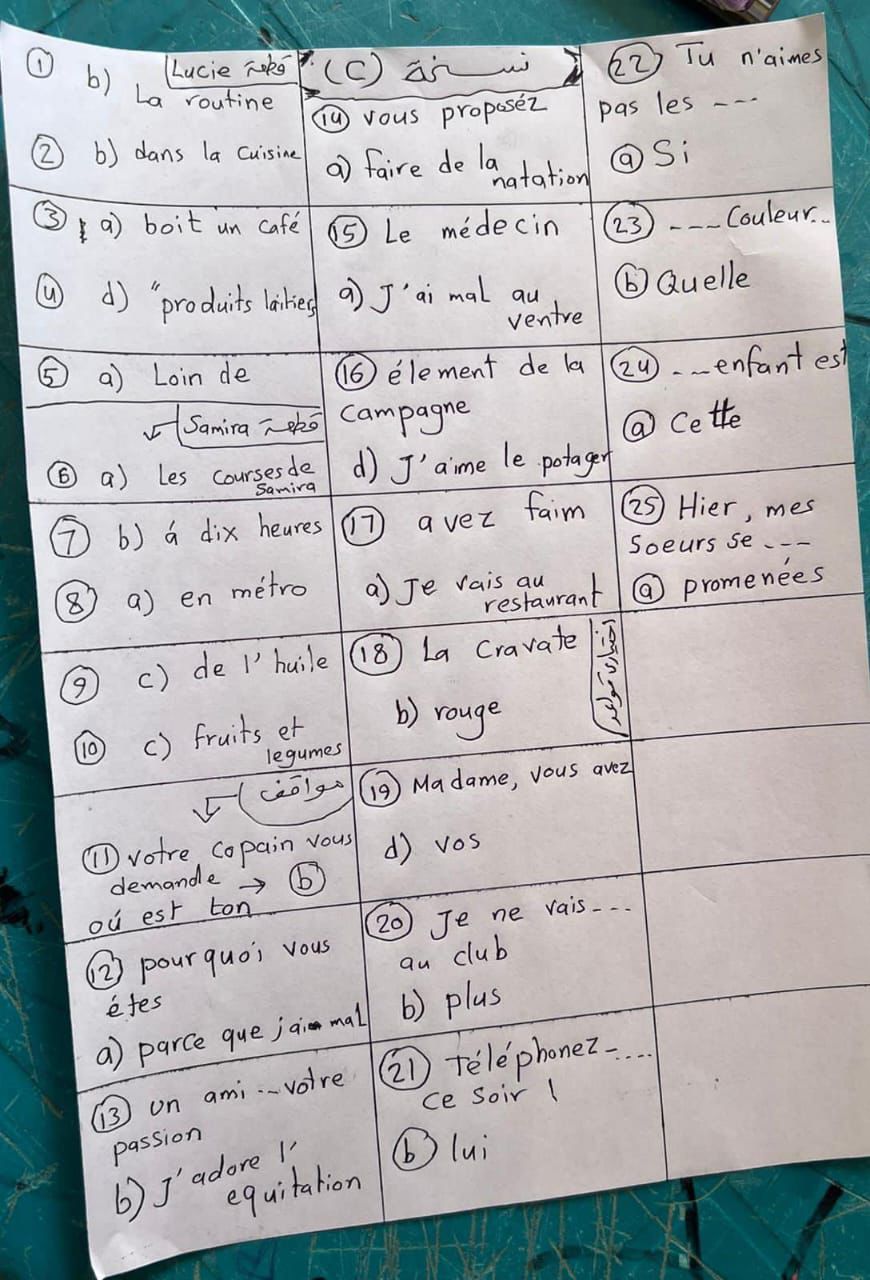 ① b) Lucie قطعة
La routine
② b) dans la cuisine
③ a) boit un café
④ d) "produits laitiers
⑤ a) Loin de
Samira قطعة
⑥ a) Les courses de
Samira
⑦ b) á dix heures
⑧ a) en métro
⑨ c) de l'huile
⑩ c) fruits et
legumes
مواقف
⑪ votre copain vous
demande → ⓑ
oú est ton
⑫ pourquoi vous
étes
a) parce que j'ai mal
⑬ un ami ... votre
passion
b) J'adore l'
equitation
(C) نسخة
⑭ vous proposéz
a) faire de la
natation
⑮ Le médecin
a) J'ai mal au
ventre
⑯ élement de la
campagne
d) J'aime le potager
⑰ avez faim
a) Je vais au
restaurant
⑱ La cravate
b) rouge
اختياري قواعد
⑲ Madame, vous avez
d) vos
⑳ Je ne vais ---
au club
b) plus
㉑ Téléphonez -....
ce soir !
ⓑ lui
㉒ Tu n'aimes
pas les ---
ⓐ Si
㉓ --- Couleur..
ⓑ Quelle
㉔ --- enfant est
ⓐ Cette
㉕ Hier, mes
soeurs se ---
ⓐ promenées